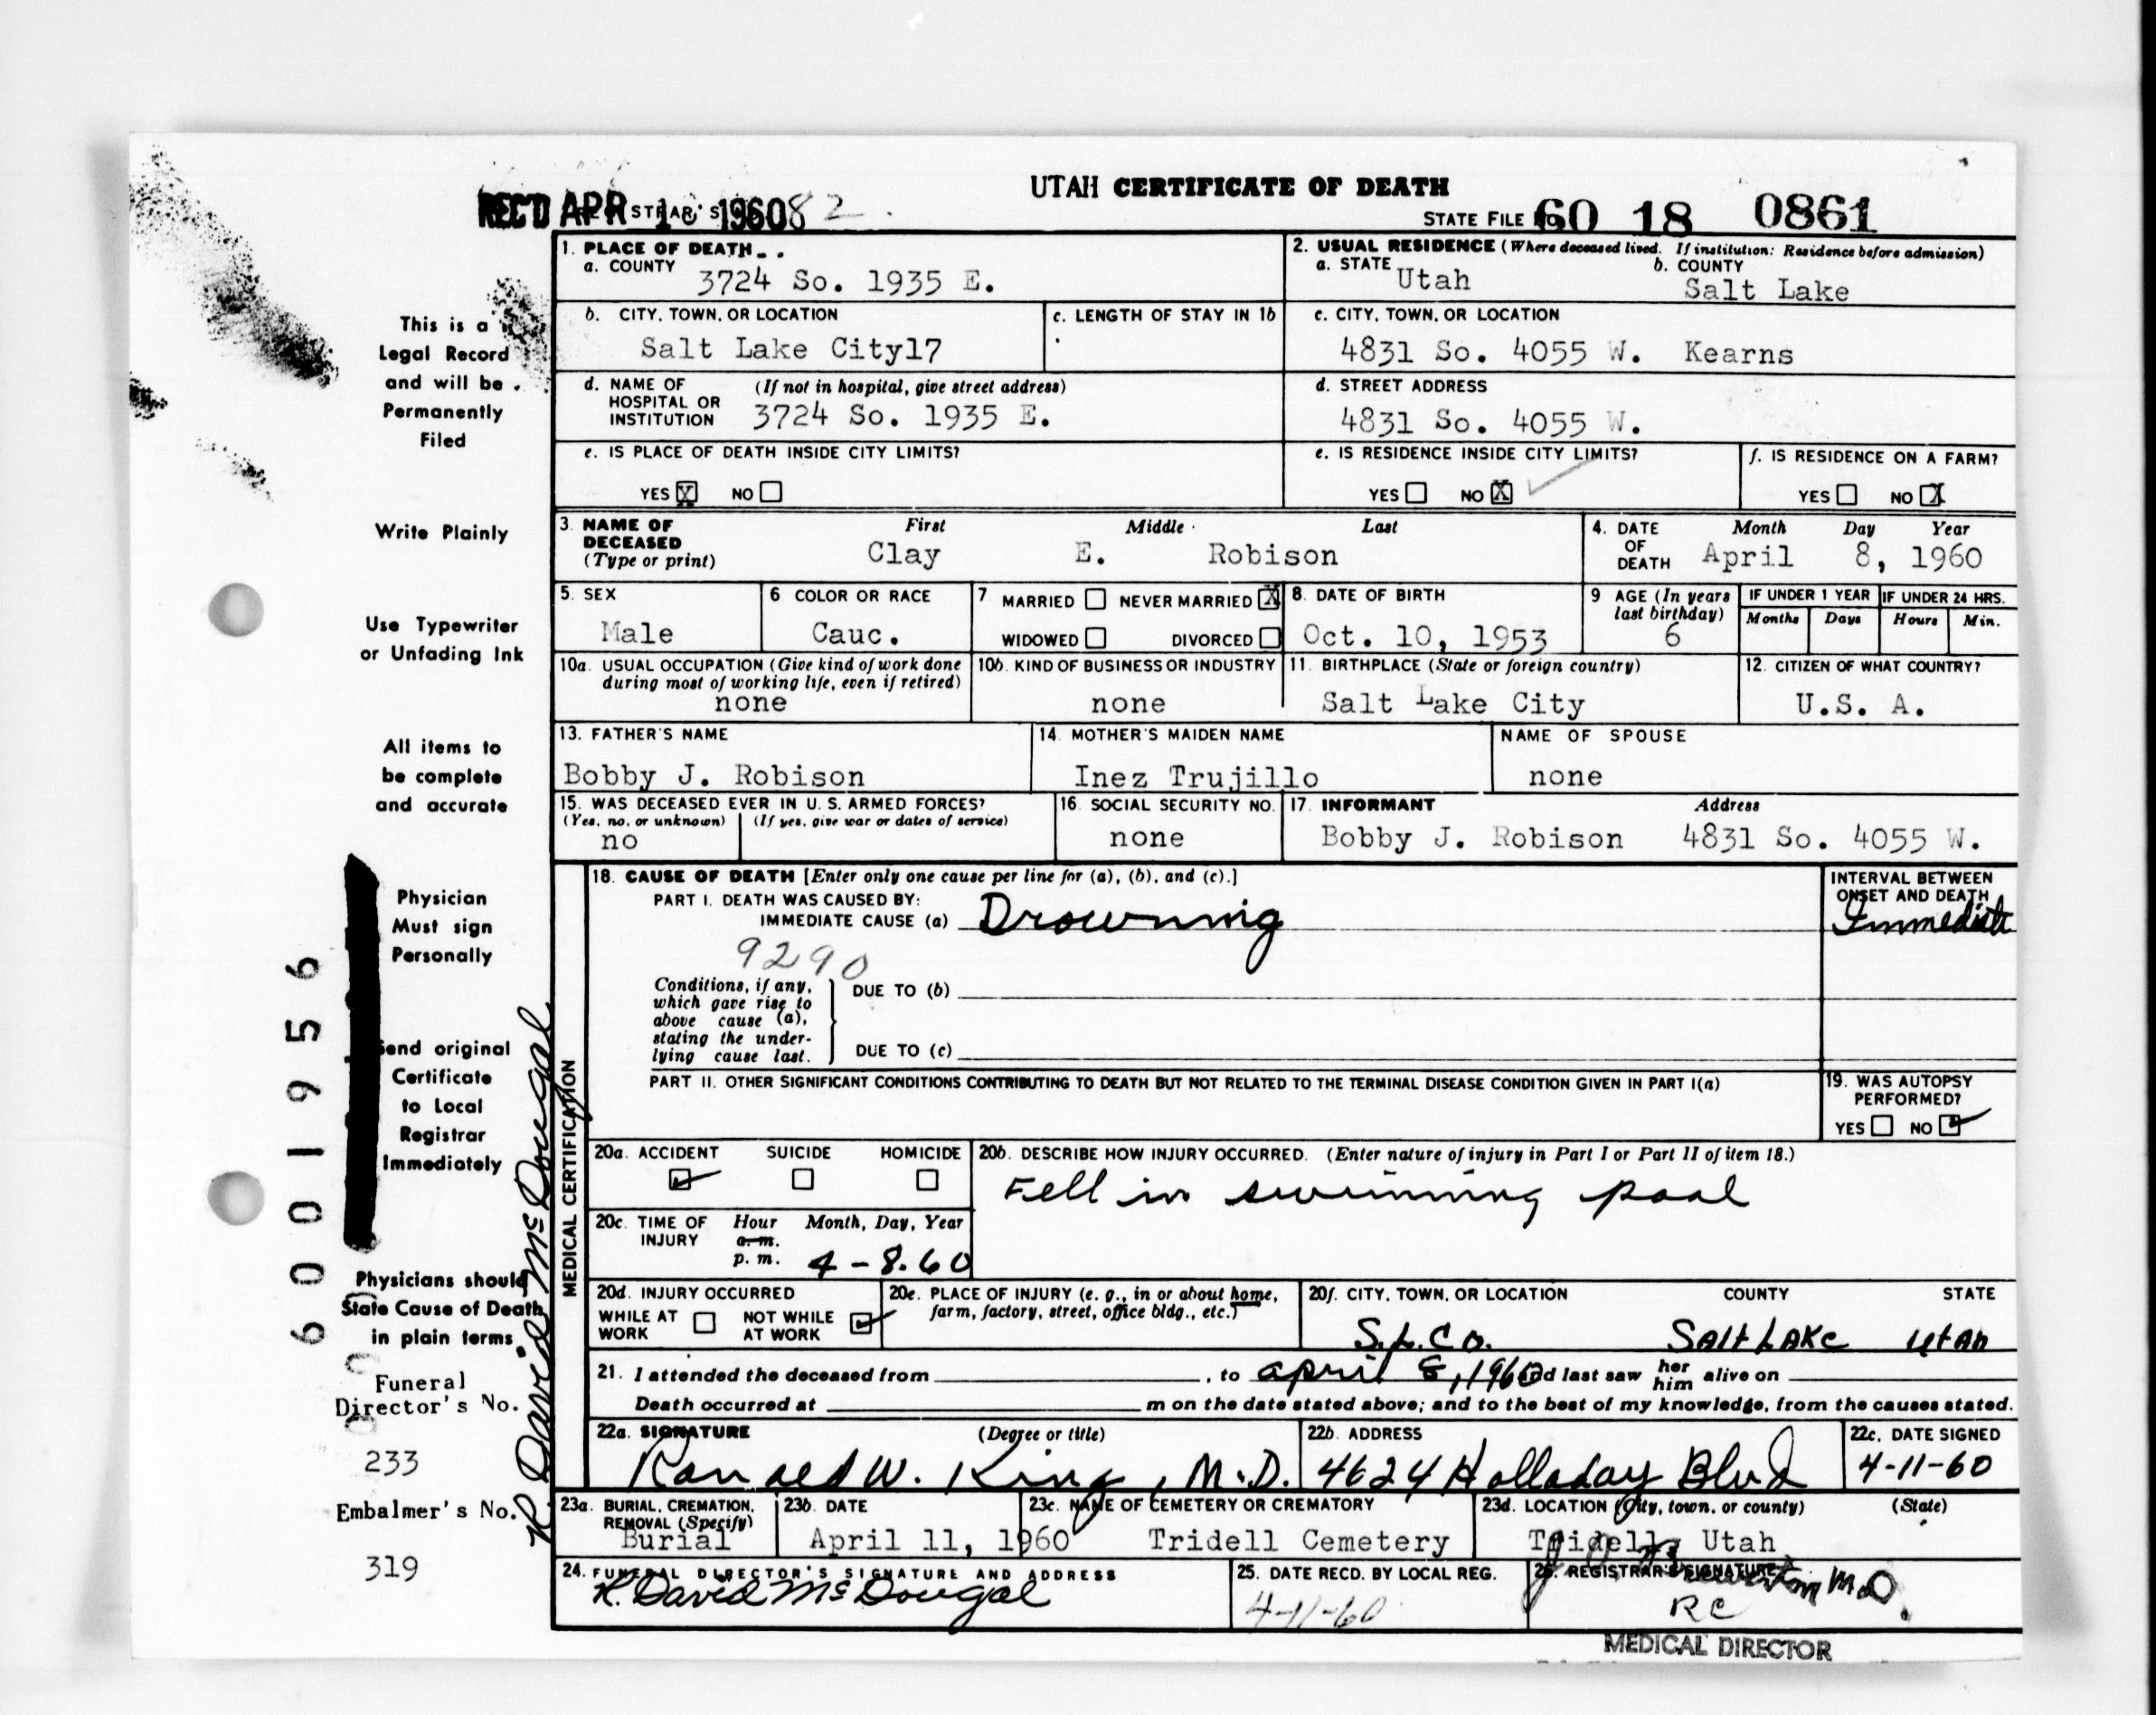 UTAH CERTIFICATE OF DEATH
REC'D APR 18 1960 82
STATE FILE NO. 60 18 0861
1. PLACE OF DEATH
a. COUNTY 3724 So. 1935 E.
2. USUAL RESIDENCE (Where deceased lived. If institution: Residence before admission)
a. STATE Utah b. COUNTY Salt Lake
b. CITY, TOWN, OR LOCATION Salt Lake City17
c. LENGTH OF STAY IN 1b
c. CITY, TOWN, OR LOCATION 4831 So. 4055 W. Kearns
d. NAME OF HOSPITAL OR INSTITUTION (If not in hospital, give street address) 3724 So. 1935 E.
d. STREET ADDRESS 4831 So. 4055 W.
e. IS PLACE OF DEATH INSIDE CITY LIMITS?
YES X NO
e. IS RESIDENCE INSIDE CITY LIMITS?
YES NO X
f. IS RESIDENCE ON A FARM?
YES NO X
3. NAME OF DECEASED (Type or print) First Middle Last
Clay E. Robison
4. DATE OF DEATH Month Day Year
April 8, 1960
5. SEX Male
6 COLOR OR RACE Cauc.
7. MARRIED NEVER MARRIED X
WIDOWED DIVORCED
8. DATE OF BIRTH Oct. 10, 1953
9 AGE (In years last birthday) 6
IF UNDER 1 YEAR Months Days
IF UNDER 24 HRS. Hours Min.
10a. USUAL OCCUPATION (Give kind of work done during most of working life, even if retired) none
10b. KIND OF BUSINESS OR INDUSTRY none
11. BIRTHPLACE (State or foreign country) Salt Lake City
12. CITIZEN OF WHAT COUNTRY? U.S. A.
13. FATHER'S NAME Bobby J. Robison
14. MOTHER'S MAIDEN NAME Inez Trujillo
NAME OF SPOUSE none
15. WAS DECEASED EVER IN U. S. ARMED FORCES?
(Yes, no, or unknown) (If yes, give war or dates of service)
no
16. SOCIAL SECURITY NO. none
17. INFORMANT Address
Bobby J. Robison 4831 So. 4055 W.
MEDICAL CERTIFICATION
18. CAUSE OF DEATH [Enter only one cause per line for (a), (b), and (c).]
PART I. DEATH WAS CAUSED BY:
IMMEDIATE CAUSE (a) Drowning
9290
INTERVAL BETWEEN ONSET AND DEATH
Immediate
Conditions, if any, which gave rise to above cause (a), stating the underlying cause last.
DUE TO (b)
DUE TO (c)
PART II. OTHER SIGNIFICANT CONDITIONS CONTRIBUTING TO DEATH BUT NOT RELATED TO THE TERMINAL DISEASE CONDITION GIVEN IN PART I(a)
19. WAS AUTOPSY PERFORMED?
YES NO ✓
20a. ACCIDENT ✓ SUICIDE HOMICIDE
20b. DESCRIBE HOW INJURY OCCURRED. (Enter nature of injury in Part I or Part II of item 18.)
Fell in swimming pool
20c. TIME OF INJURY Hour Month, Day, Year
a. m.
p. m. 4-8-60
20d. INJURY OCCURRED
WHILE AT WORK NOT WHILE AT WORK ✓
20e. PLACE OF INJURY (e. g., in or about home, farm, factory, street, office bldg., etc.)
20f. CITY, TOWN, OR LOCATION COUNTY STATE
S.L.CO. SALT LAKE UTAH
21. I attended the deceased from , to April 8, 1960 and last saw her him alive on
Death occurred at m on the date stated above; and to the best of my knowledge, from the causes stated.
22a. SIGNATURE (Degree or title)
Ronald W. King, M.D.
22b. ADDRESS 4624 Holladay Blvd
22c. DATE SIGNED 4-11-60
23a. BURIAL, CREMATION, REMOVAL (Specify) Burial
23b. DATE April 11, 1960
23c. NAME OF CEMETERY OR CREMATORY Tridell Cemetery
23d. LOCATION (City, town, or county) (State)
Tridell, Utah
24. FUNERAL DIRECTOR'S SIGNATURE AND ADDRESS
R. David McDougal
25. DATE RECD. BY LOCAL REG.
4-11-60
26. REGISTRAR'S SIGNATURE
M.D.
RC
MEDICAL DIRECTOR
This is a
Legal Record
and will be
Permanently
Filed
Write Plainly
Use Typewriter
or Unfading Ink
All items to
be complete
and accurate
Physician
Must sign
Personally
Send original
Certificate
to Local
Registrar
Immediately
Physicians should
State Cause of Death
in plain terms
Funeral
Director's No.
233
Embalmer's No.
319
R David McDougal
6001956